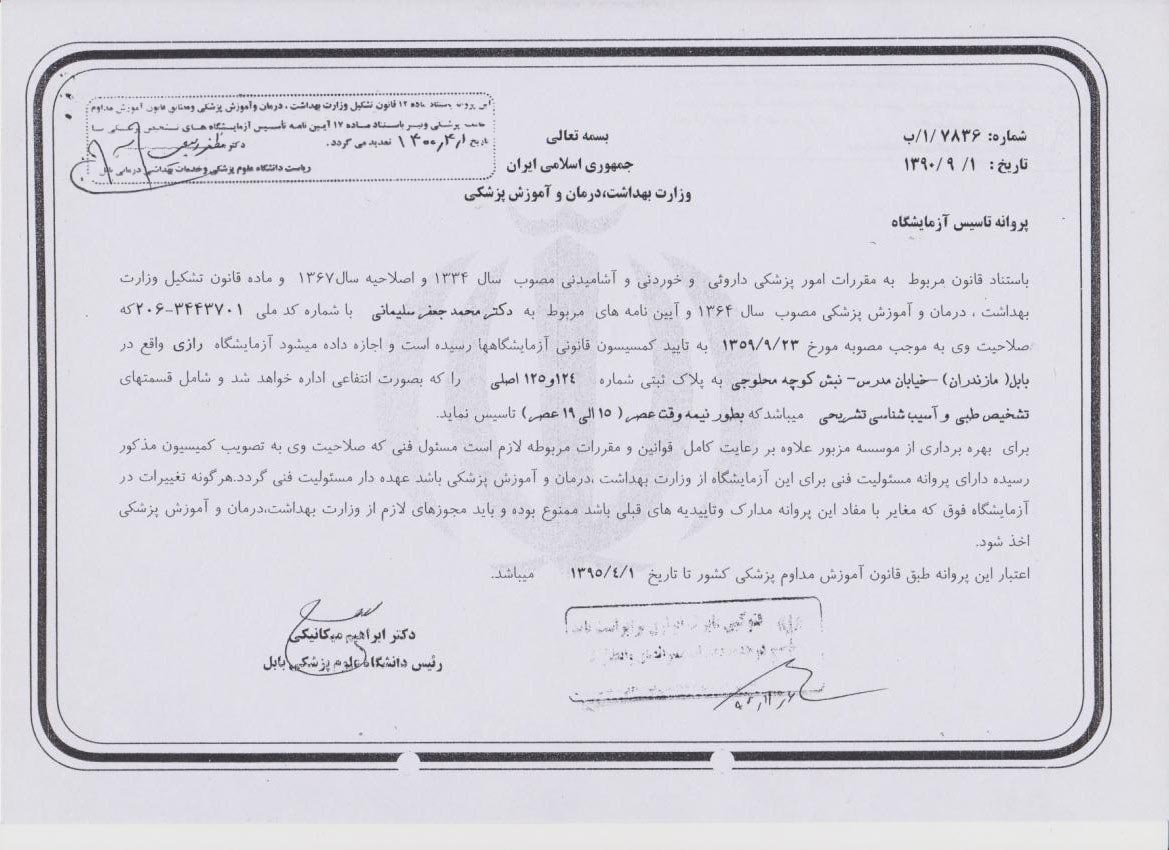 شماره: ۷۸۳۶ /۱/ب
تاریخ : ۱ /۹ /۱۳۹۰
بسمه تعالی
جمهوری اسلامی ایران
وزارت بهداشت،درمان و آموزش پزشکی
این پروانه باستناد ماده ۱۲ قانون تشکیل وزارت بهداشت ، درمان وآموزش پزشکی ومطابق قانون آموزش مداوم
جامعه پزشکی ونیز باستناد ماده ۱۷ آیین نامه تأسیس آزمایشگاه های تشخیص پزشکی تا
تاریخ ۱۴۰۰,۴,۱ تمدید می گردد.
دکتر
ریاست دانشگاه علوم پزشکی وخدمات بهداشتی درمانی بابل
پروانه تاسیس آزمایشگاه
باستناد قانون مربوط به مقررات امور پزشکی داروئی و خوردنی و آشامیدنی مصوب سال ۱۳۳۴ و اصلاحیه سال۱۳۶۷ و ماده قانون تشکیل وزارت
بهداشت ، درمان و آموزش پزشکی مصوب سال ۱۳۶۴ و آیین نامه های مربوط به دکتر محمد جعفر سلیمانی با شماره کد ملی ۳۴۴۳۷۰۱-۲۰۶که
صلاحیت وی به موجب مصوبه مورخ ۱۳۵۹/۹/۲۳ به تایید کمسیسون قانونی آزمایشگاهها رسیده است و اجازه داده میشود آزمایشگاه رازی واقع در
بابل( مازندران) –خیابان مدرس- نبش کوچه محلوجی به پلاک ثبتی شماره ۱۲۴و۱۲۵ اصلی را که بصورت انتفاعی اداره خواهد شد و شامل قسمتهای
تشخیص طبی و آسیب شناسی تشریحی میباشدکه بطور نیمه وقت عصر ( ۱۵ الی ۱۹ عصر ) تاسیس نماید.
برای بهره برداری از موسسه مزبور علاوه بر رعایت کامل قوانین و مقررات مربوطه لازم است مسئول فنی که صلاحیت وی به تصویب کمیسیون مذکور
رسیده دارای پروانه مسئولیت فنی برای این آزمایشگاه از وزارت بهداشت ،درمان و آموزش پزشکی باشد عهده دار مسئولیت فنی گردد.هرگونه تغییرات در
آزمایشگاه فوق که مغایر با مفاد این پروانه مدارک وتاییدیه های قبلی باشد ممنوع بوده و باید مجوزهای لازم از وزارت بهداشت،درمان و آموزش پزشکی
اخذ شود.
اعتبار این پروانه طبق قانون آموزش مداوم پزشکی کشور تا تاریخ ۱۳۹۵/۴/۱ میباشد.
دکتر ابراهیم میکانیکی
رئیس دانشگاه علوم پزشکی بابل